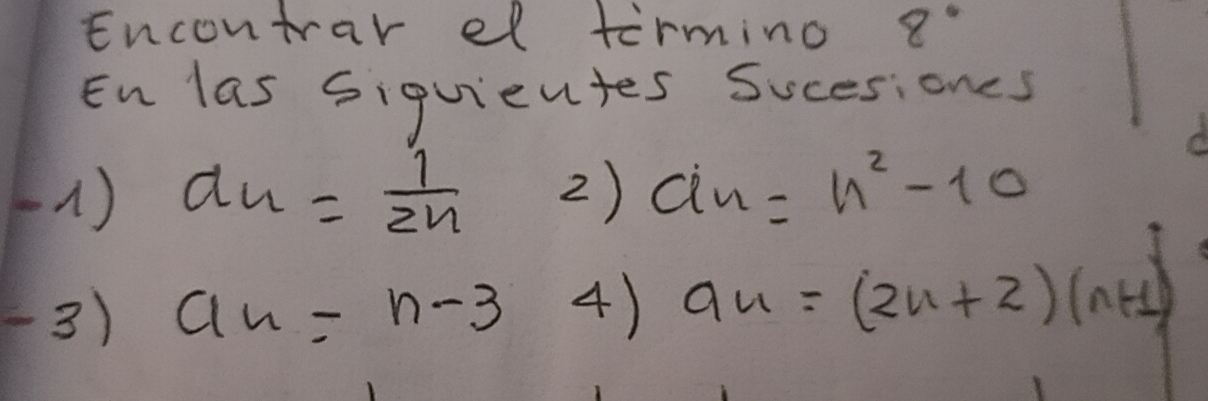 Encontrar el término 8°
En las siguientes Sucesiones
1) an = 1/2n 2) an = n² - 10
3) an = n - 3 4) an = (2n + 2)(n+1)